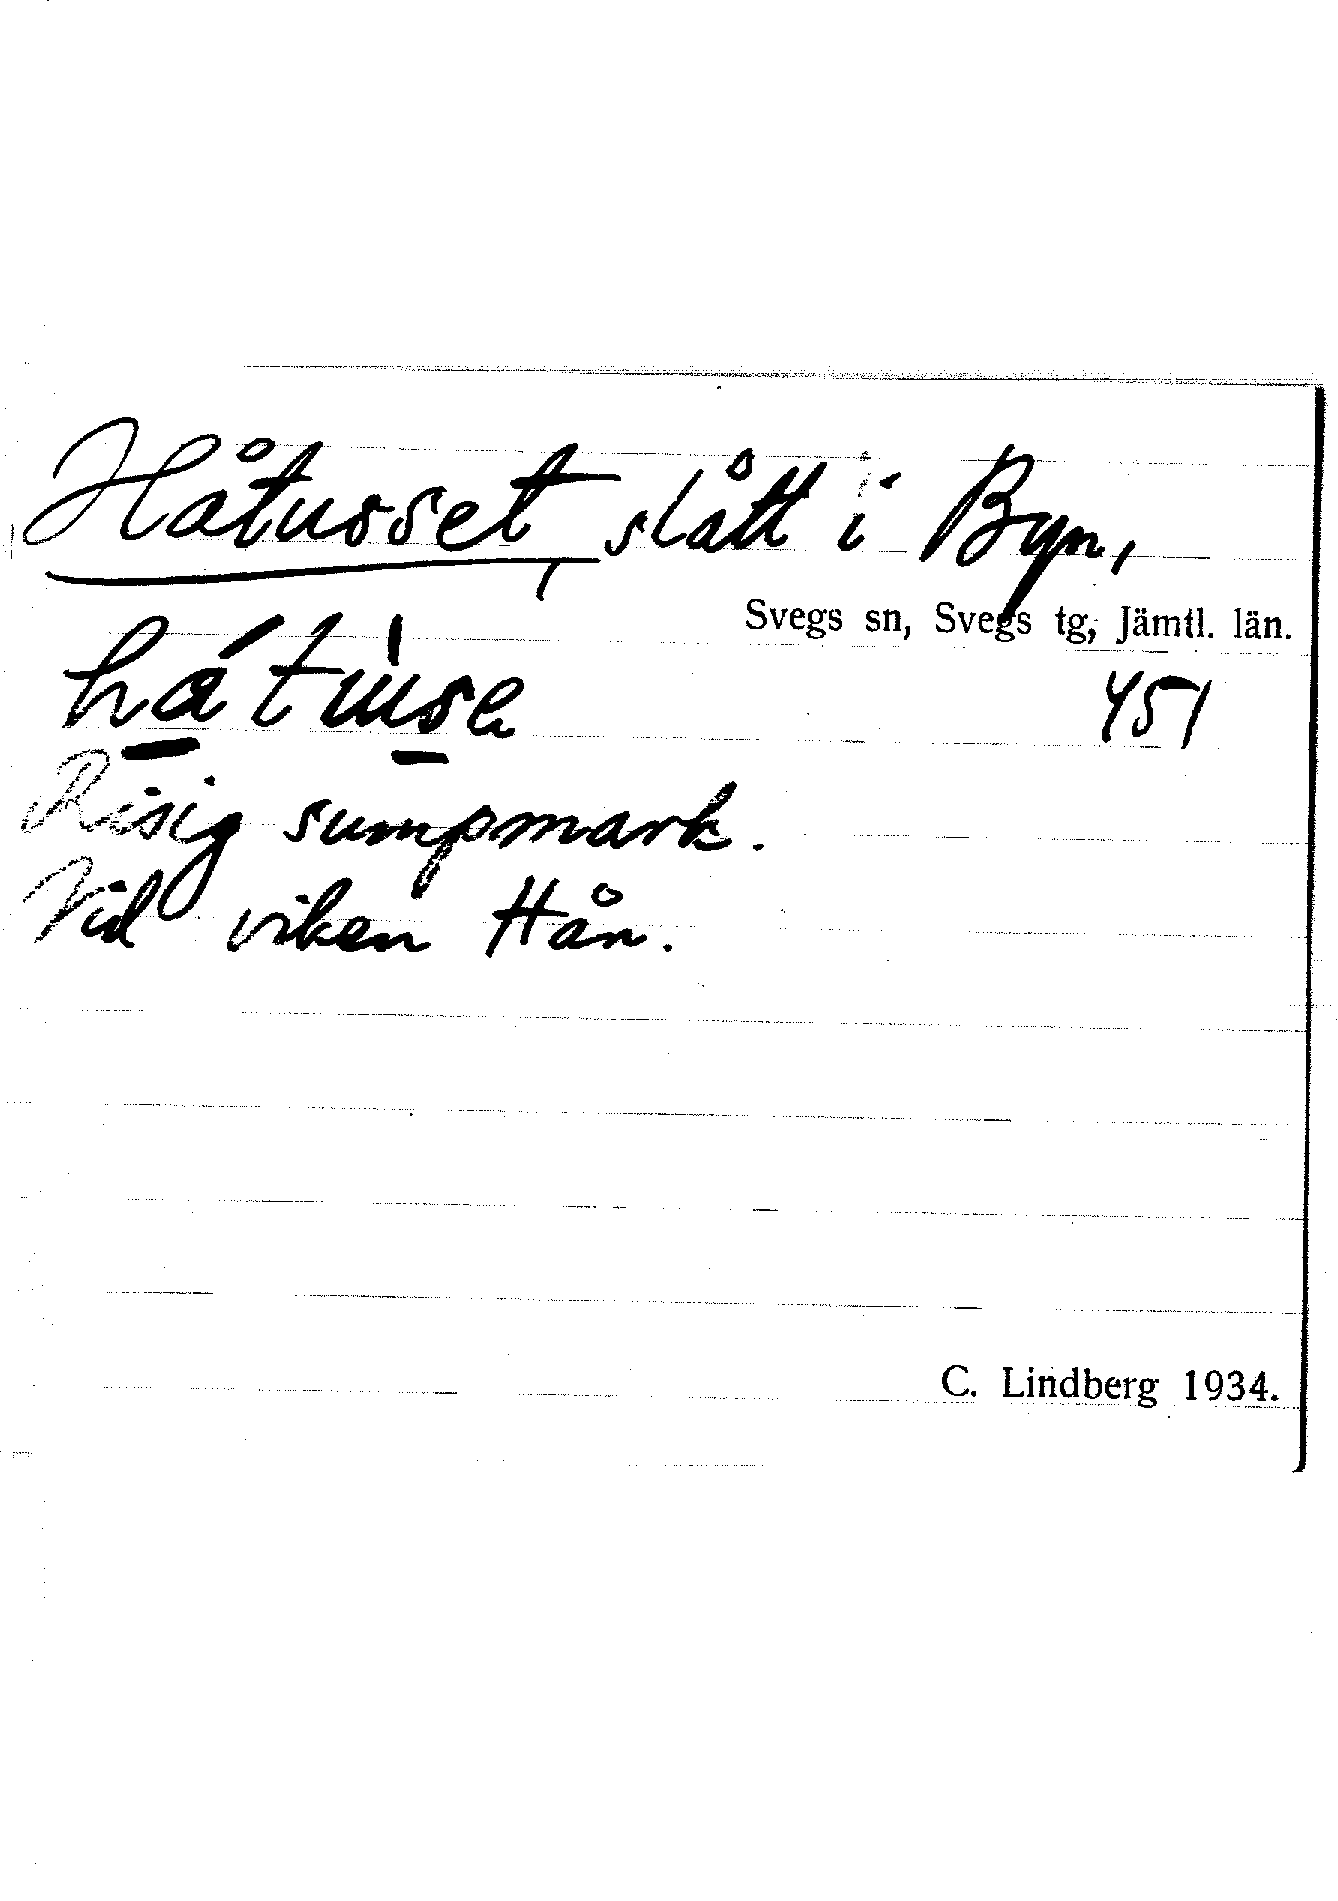 Håtusset, slått i Byn,
Svegs sn, Svegs tg, Jämtl. län.
451
Risig sumpmark.
Vid viken Hån.
C. Lindberg 1934.